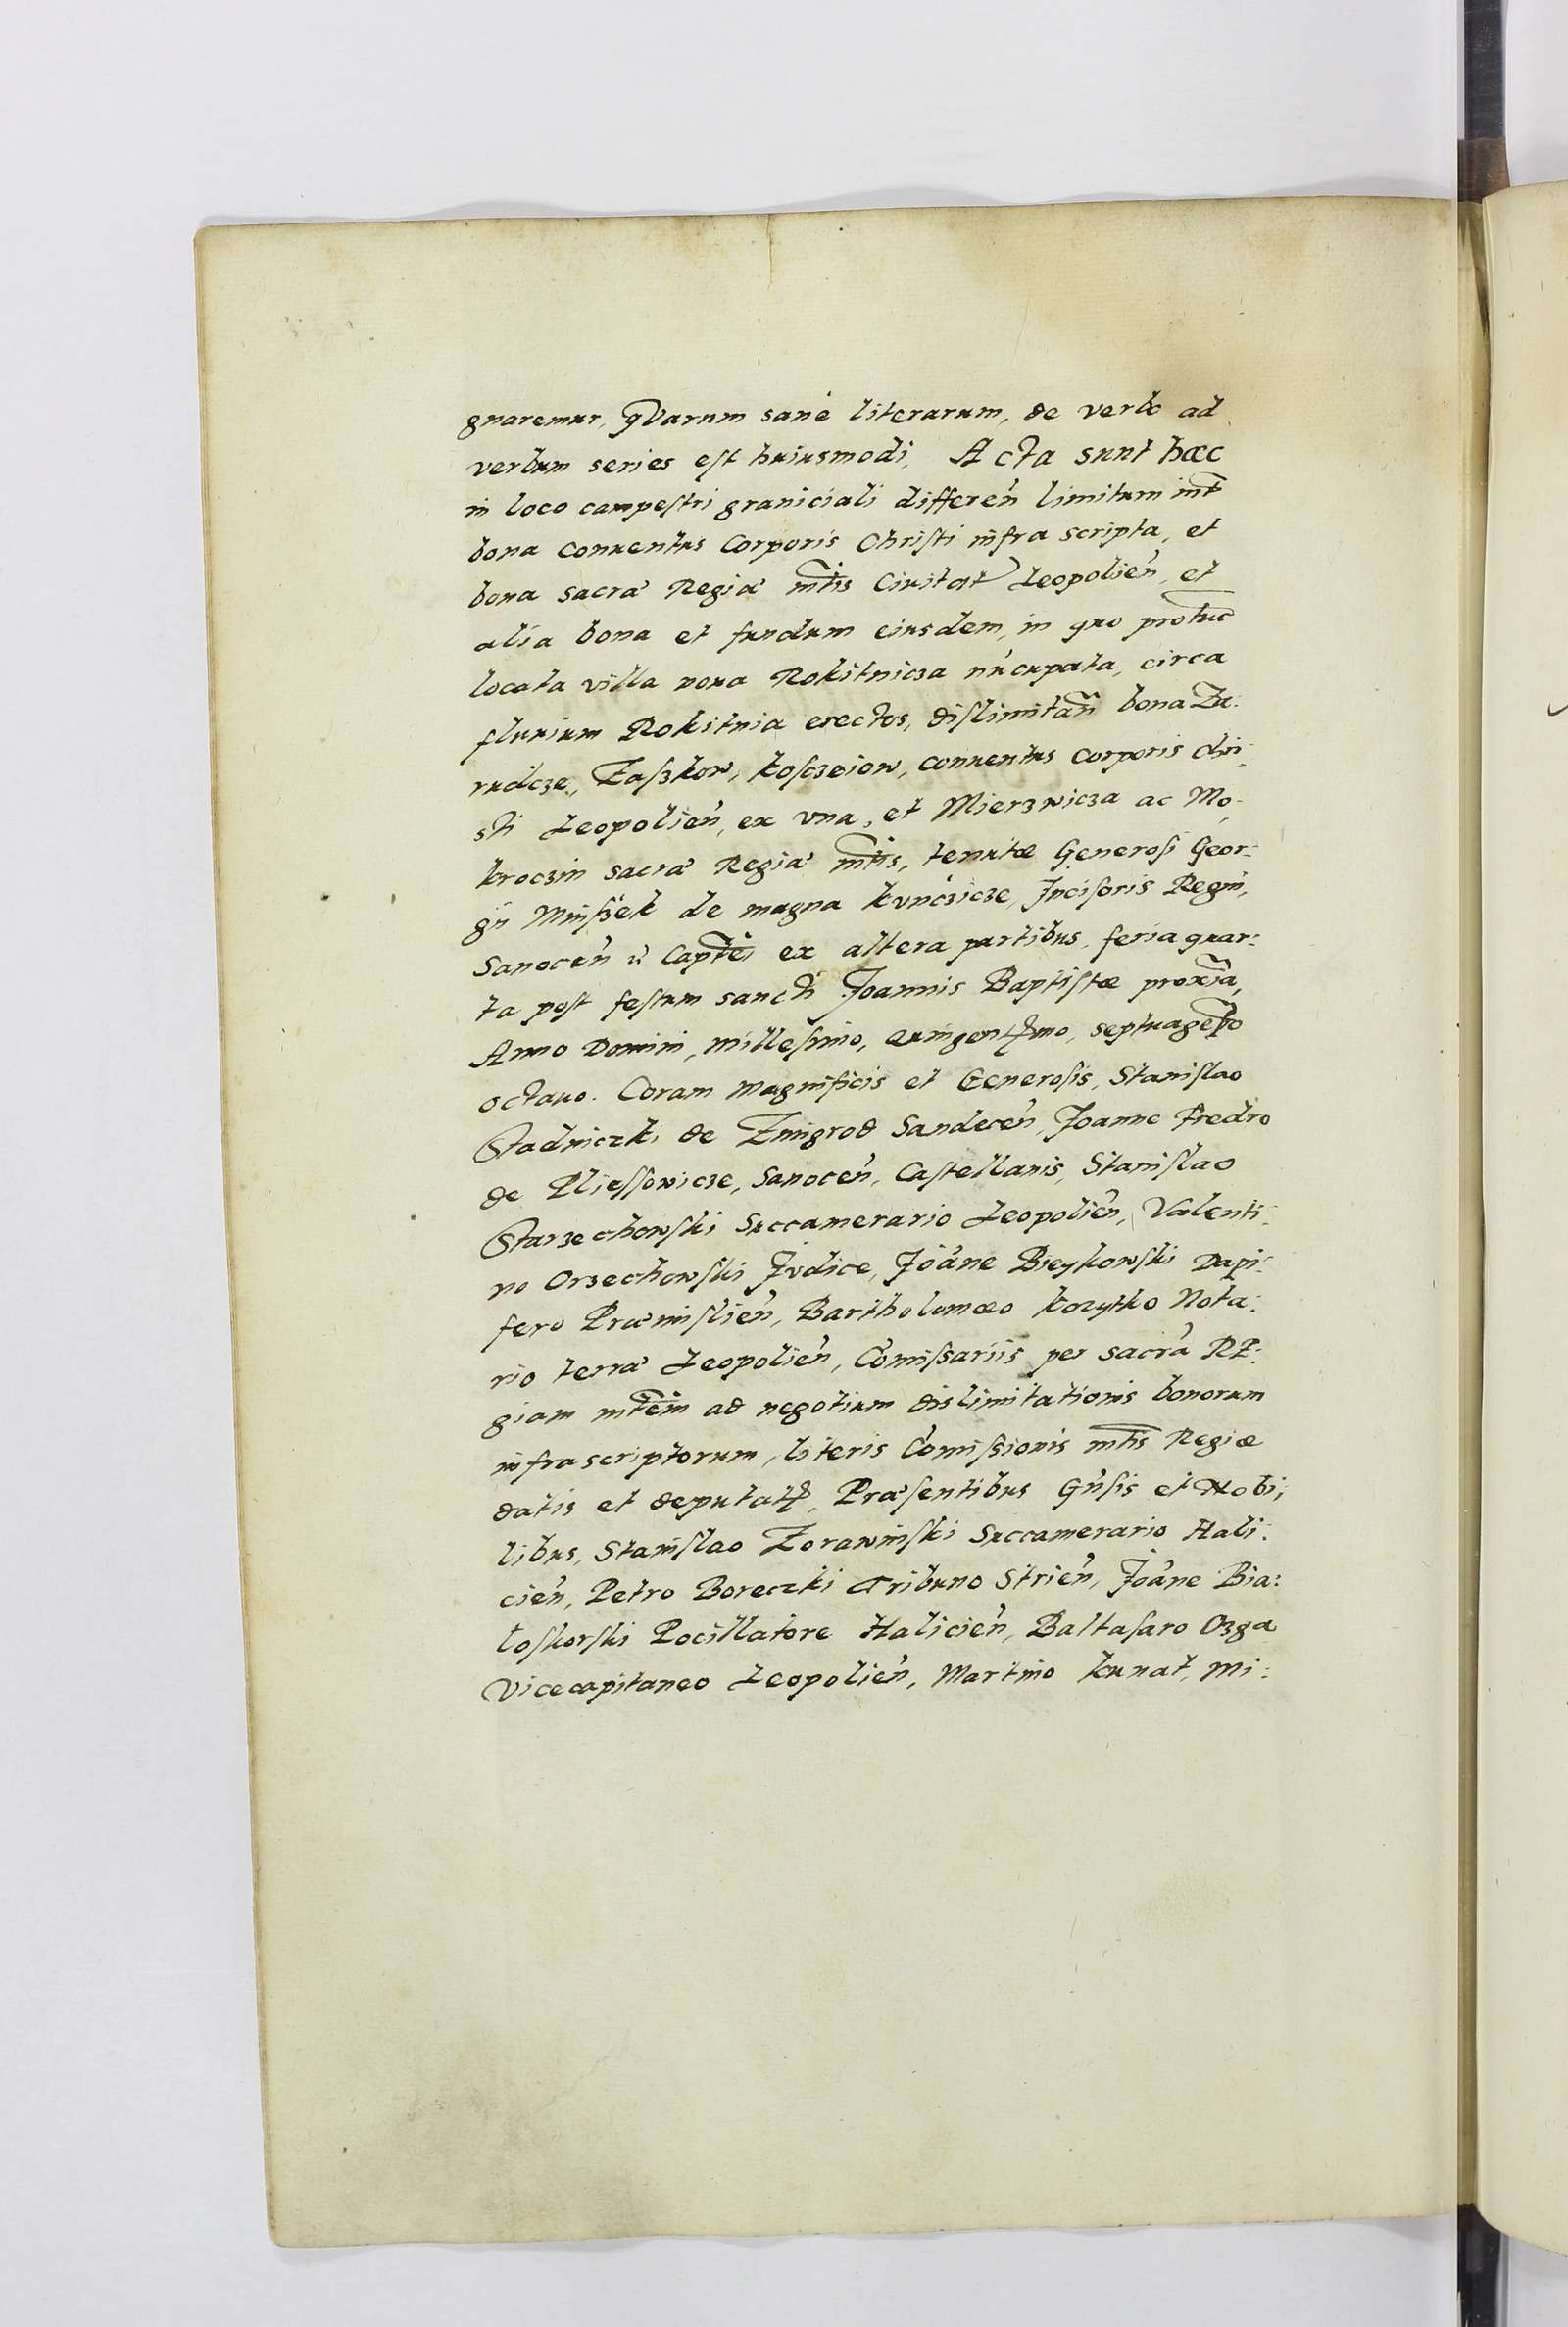 gnaremur, qVarum sanè literarum, de verbo ad
verbum series est huiusmodi, Acta sunt hæc
in loco campestri graniciali differeñ limitum int̃
bona conuentus Corporis Christi infra scripta, et
bona sacræ Regiæ mt̃is Ciuitat Leopolieñ, et
alia bona et fundum eiusdem, in quo pro tũc
locata villa noua Rokitnicza nũcupata, circa
fluuium Rokitnia erectos, dislimitañ bona Zu:
rudcze, Zaszkow, kosczeiow, conuentus corporis chri:
sti Leopolieñ, ex vna, et Mierzwicza ac Mo:
kroczin sacræ Regiæ mt̃is, tenutæ Generosi Geor:
gii Minszek de magna kvnczicze, Incisoris Regni,
Sanoceñ Capt̃ei ex altera partibus, feria quar:
ta post festum sancti Joannis Baptistæ prox̃ia,
Anno Domini, millesimo, quingentmo, septuagẽo
octauo. Coram magnificis et Generosis, Stanislao
Stadniczki de Zmigrod Sandeceñ, Joanne Fredro
de Pliessowicze, Sanoceñ, Castellanis, Stanislao
Starzechowski Succamerario Leopolieñ, Valenti:
no Orzechowski Jvdice, Joãne Bieykowski Dapi:
fero Præmislieñ, Bartholomæo kozytko Nota:
rio terræ Leopolieñ, Cõmissariis per sacrã RE:
giam mt̃em ad negotium dislimitationis bonorum
infrascriptorum, literis Cõmissionis mt̃is Regiæ
datis et deputat, Præsentibus Gñsis et Nobi:
libus, Stanislao Zorawinski Succamerario Hali:
cieñ, Petro Boreczki Tribuno Strieñ, Joãne Bia:
loskorski Pocillatore Halicieñ, Baltasaro Ozga
Vicecapitaneo Leopolieñ, Martino kunat, mi: